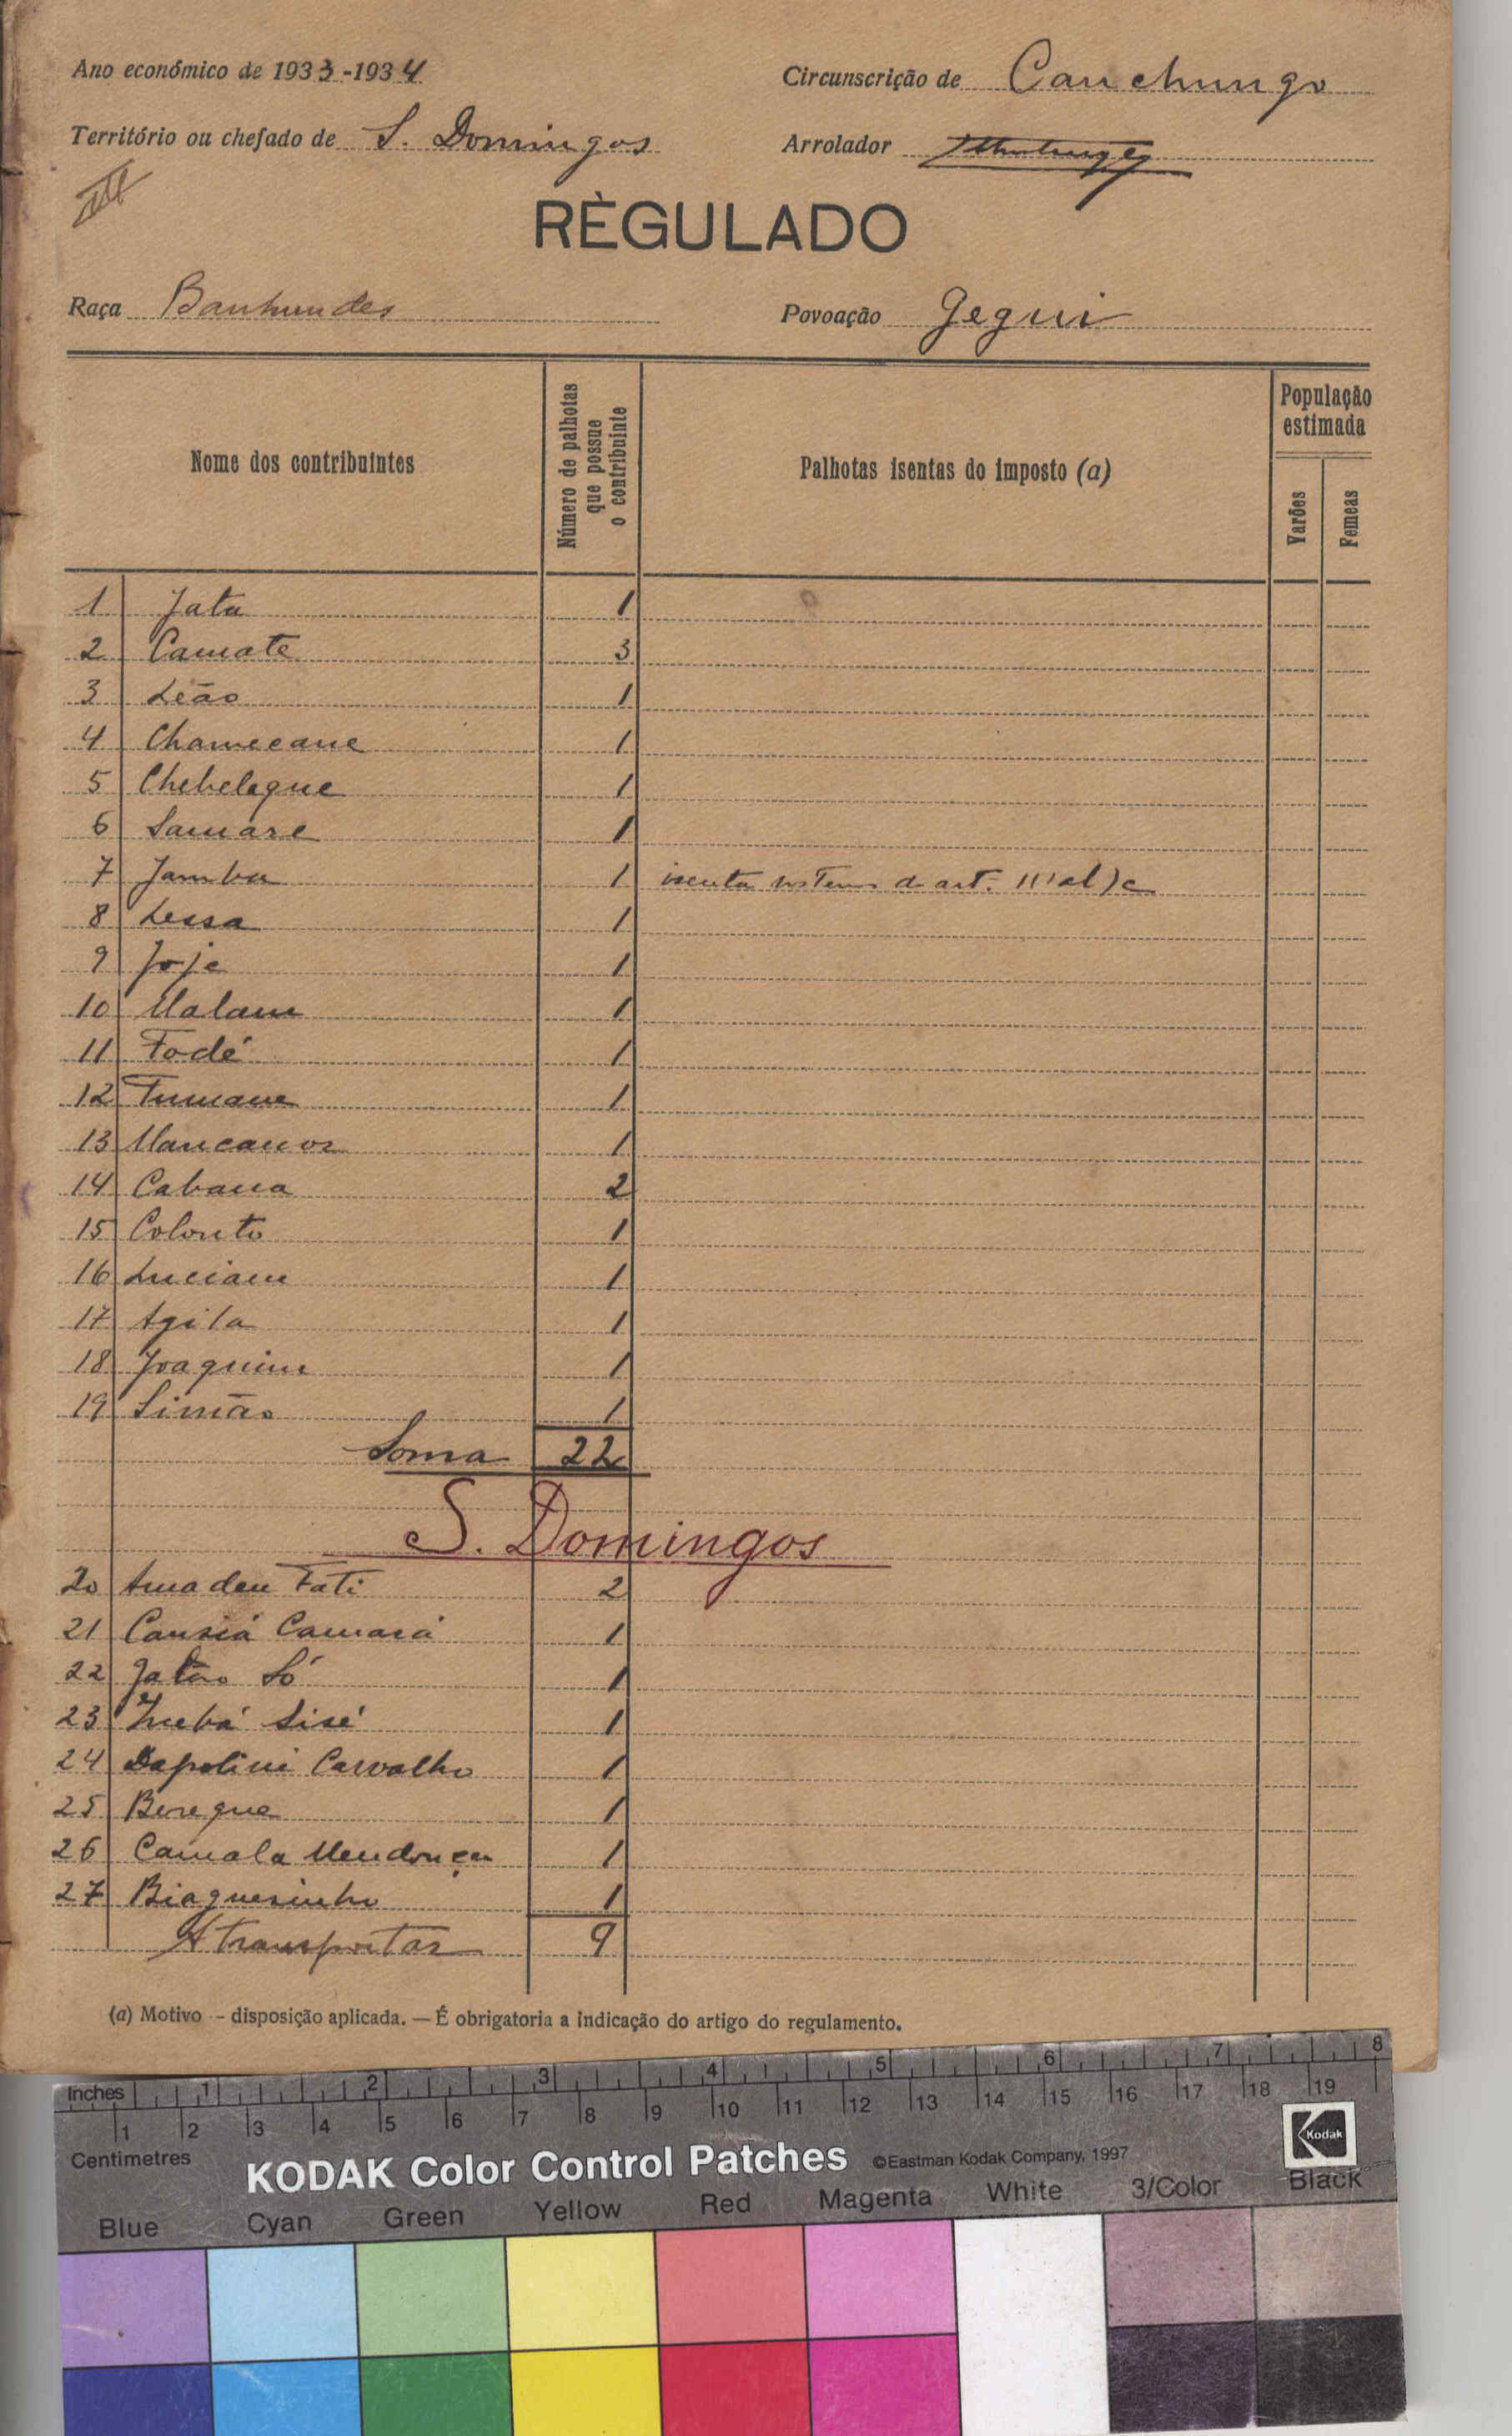 Ano económico de 1933-1934
Circunscrição de Canchungo
Território ou chefado de S. Domingos
Arrolador
III
RÈGULADO
Raça Banhundes
Povoação Gegui
Nome dos contribuintes
Número de palhotas que possue o contribuinte
Palhotas isentas do imposto (a)
População estimada
Varões
Femeas
1 Jata 1
2 Camate 3
3 Leão 1
4 Chamecane 1
5 Chebelegue 1
6 Samare 1
7 Jamba 1 isenta nos termos do art. 11º al) c
8 Lessa 1
9 Joje 1
10 Malam 1
11 Fodé 1
12 Tumane 1
13 Mancanor 1
14 Cabana 2
15 Colonto 1
16 Luciam 1
17 Agila 1
18 Joaquim 1
19 Simão 1
Soma 22
S. Domingos
20 Amadeu Fati 2
21 Cansiá Camará 1
22 Jatão Só 1
23 Sisé 1
24 Carvalho 1
25 Beregue 1
26 Camala Mendonça 1
27 Biaguesinho 1
A transportar 9
(a) Motivo - disposição aplicada. — É obrigatoria a indicação do artigo do regulamento.
Inches 1 2 3 4 5 6 7 8
1 2 3 4 5 6 7 8 9 10 11 12 13 14 15 16 17 18 19
Centimetres
KODAK Color Control Patches ©Eastman Kodak Company, 1997
Kodak
Blue Cyan Green Yellow Red Magenta White 3/Color Black